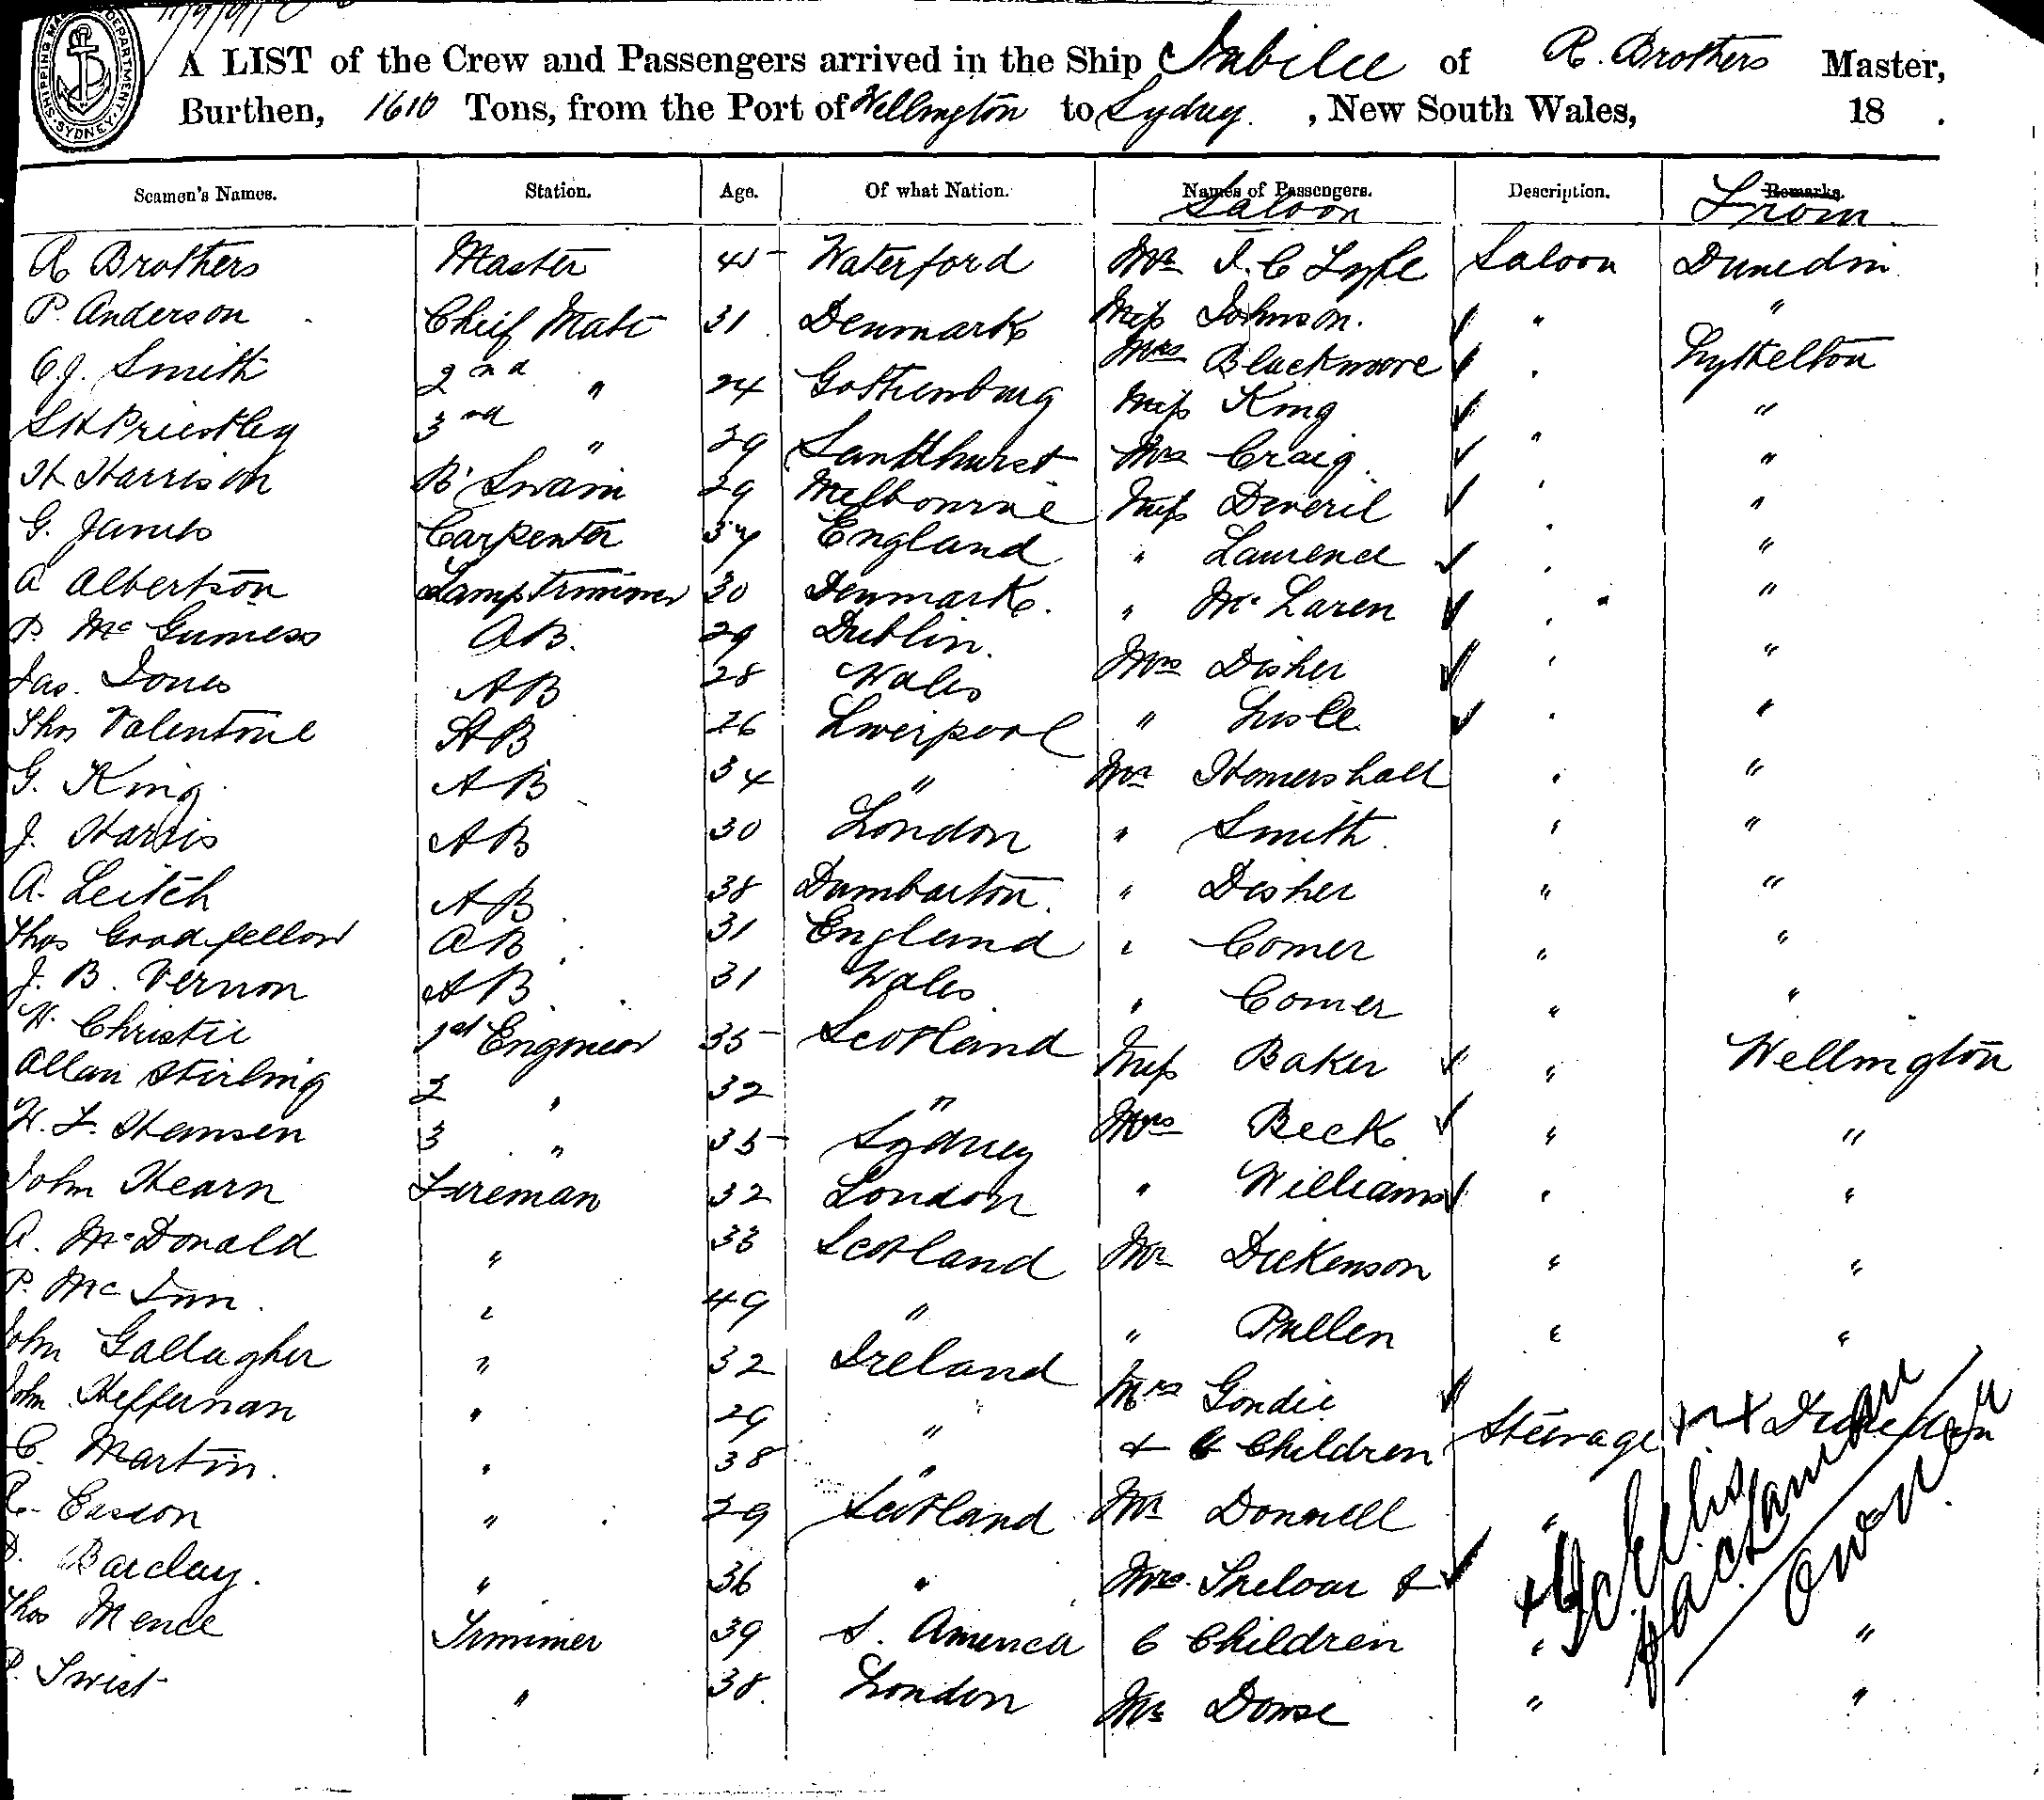 SHIPPING MA DEPARTMENT SYDNEY
A LIST of the Crew and Passengers arrived in the Ship Jubilee of R. Brothers Master,
Burthen, 1610 Tons, from the Port of Wellington to Sydney. , New South Wales, 18 .
Seamen's Names. Station. Age. Of what Nation. Names of Passengers. Description. Remarks.
Saloon From
R Brothers Master 45 Waterford Mr I. C Lyle Saloon Dunedin
P. Anderson Chief Mate 31 Denmark Miss Johnson. " "
C. J. Smith 2nd " 24 Gothenburg Mrs Blackmoore " Lyttelton
S H Priestley 3rd " 29 Sandhurst Miss King "
H Harrison B' Swain 29 Melbourne Mrs Craig " "
G. James Carpenter 34 England Miss Deveril " "
A Albertson Lamp trimmer 30 Denmark. " Laurence " "
P. McGuiness AB. 29 Dublin. " McLaren " "
Jas. Jones AB 28 Wales Mrs Disher " "
Thos Valentine AB 26 Liverpool " Lisle " "
G. King AB 34 " Mr Homershall " "
J. Harris AB 30 London " Smith " "
A. Leitch AB 38 Dumbarton. " Disher " "
Thos Goodfellow AB 31 England " Comer " "
J. B. Vernon AB 31 Wales " Comer " "
W. Christie 1st Engineer 35 Scotland Miss Baker " Wellington
Allan Stirling 2 " 32 " Mrs Beck " "
3 " 35 Sydney " Williams " "
John Hearn Fireman 32 London Mr Dickenson " "
A. McDonald " 33 Scotland " Pullen " "
P. Mc " 49 "
John Gallagher " 32 Ireland Mrs Gondie
John Heffernan " 29 " + 6 Children Steerage Dunedin
C. Martin. " 38 "
R. Easson " 29 Scotland Mr Donnell "
Barclay. " 36 " Mrs. Treloar &
Thos Mence Trimmer 39 S. America 6 Children " "
P. Swist " 38. London Mr Dowse " "